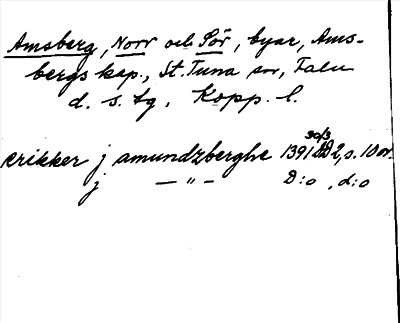 Amsberg, Norr och Sör, byar, Ams-
bergs kap., St. Tuna sn, Falu
d. s. bg, Kopp. l.
erikker j amundzberghe 1391 30/3 DD 2, s. 10 or.
j — " — D:o, d:o